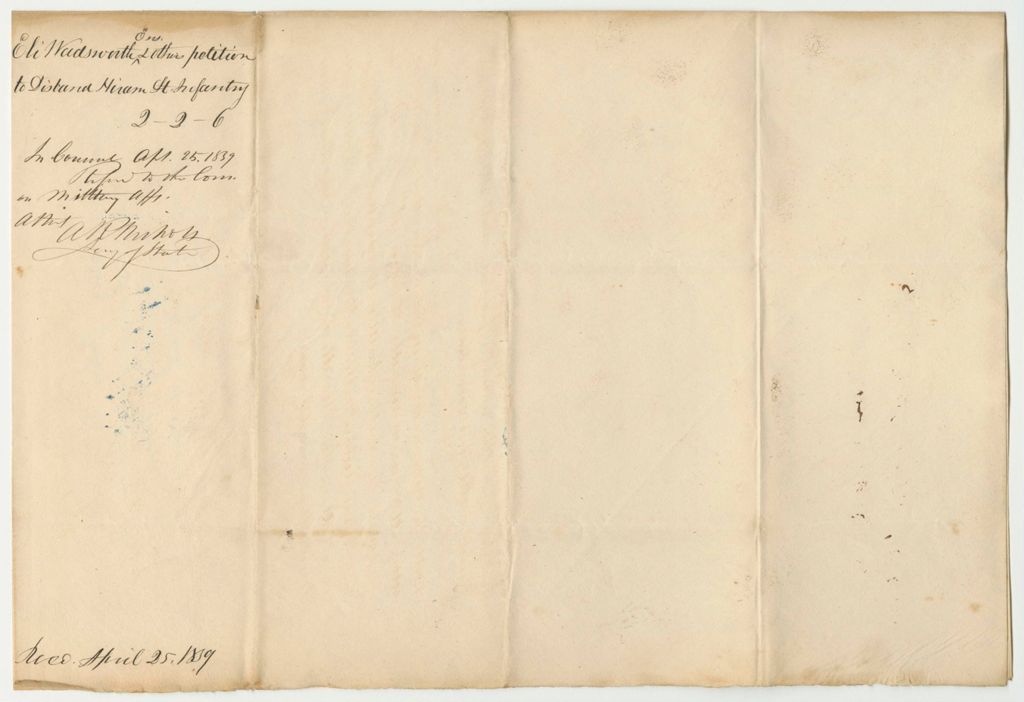 Ens.
Eli Wadsworth & other petition
to Disband Hiram Lt Infantry
2-2-6
In Council, Apl. 25, 1839
Refered to the Com.
on Military Affs.
Attest
A R Nichols
Secy of State
Recd. April 25, 1839